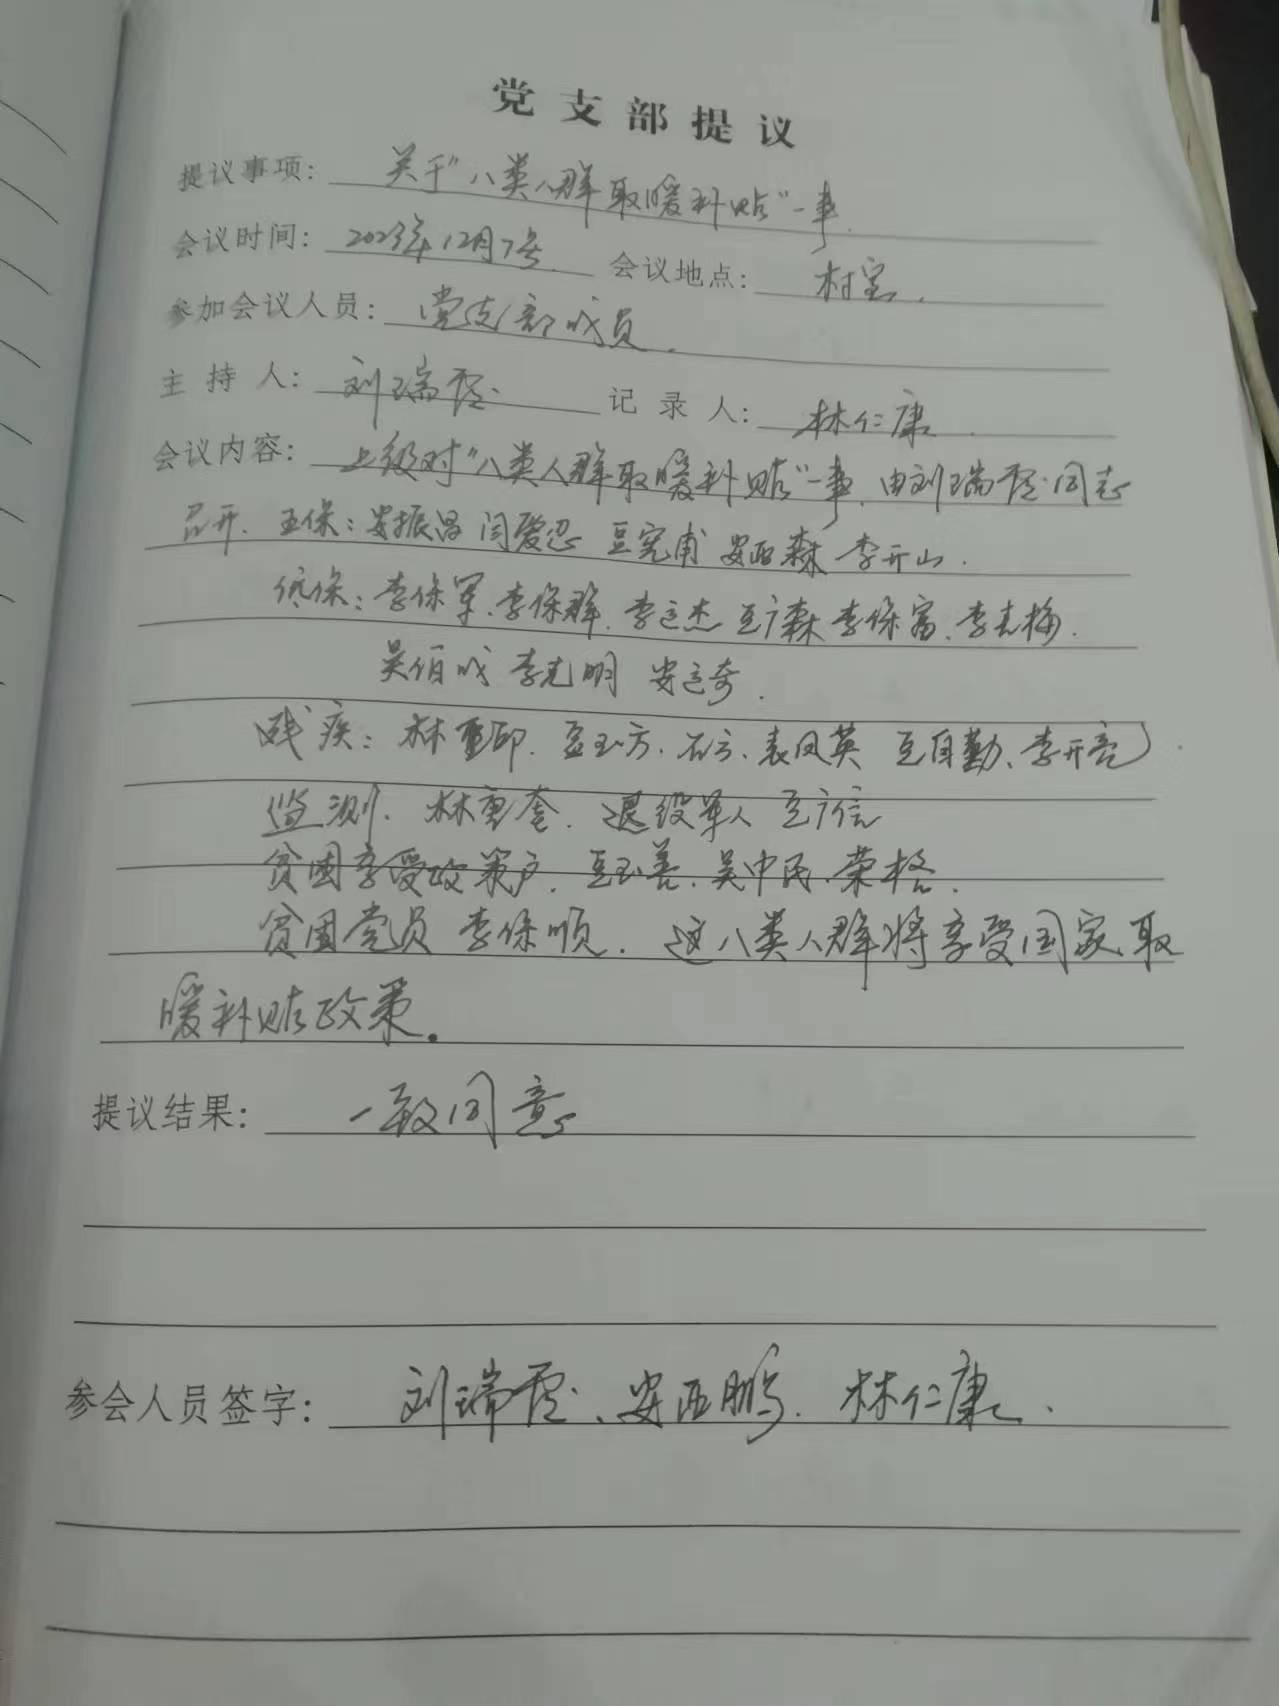 党支部提议
提议事项： 关于“八类人群取暖补贴”一事.
会议时间： 2023年12月7号. 会议地点： 村室.
参加会议人员： 党支部成员.
主持人： 刘瑞霞 记录人： 林仁康.
会议内容： 上级对“八类人群取暖补贴”一事,由刘瑞霞同志
召开. 五保：安振昌 闫爱忍 豆宪甫 安西森 李开山.
低保：李保军.李保群.李运杰 豆广森 李保富.李志梅.
吴伯成 李光明 安运奇.
残疾：林重印.豆玉方.石方.袁凤英 豆自勤、李开亮
监测. 林惠奎. 退役军人 豆广信
贫困享受政策户. 豆玉善.吴中民.荣格.
贫困党员 李保顺. 这八类人群将享受国家取
暖补贴政策。
提议结果： 一致同意
参会人员签字： 刘瑞霞、安西鹏. 林仁康.